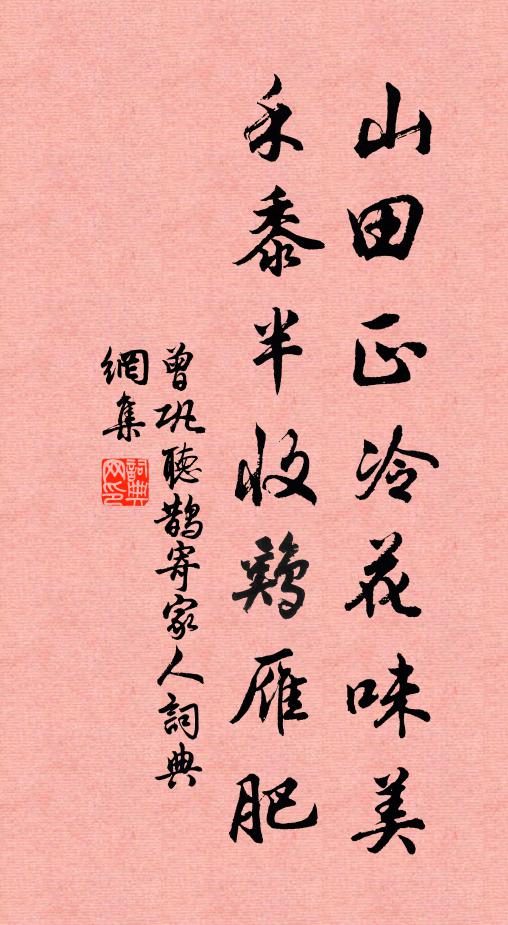 山田正冷花味美
禾黍半收鷄雁肥
曾巩聽鵲寄家人詞典
網集
詞典
网印